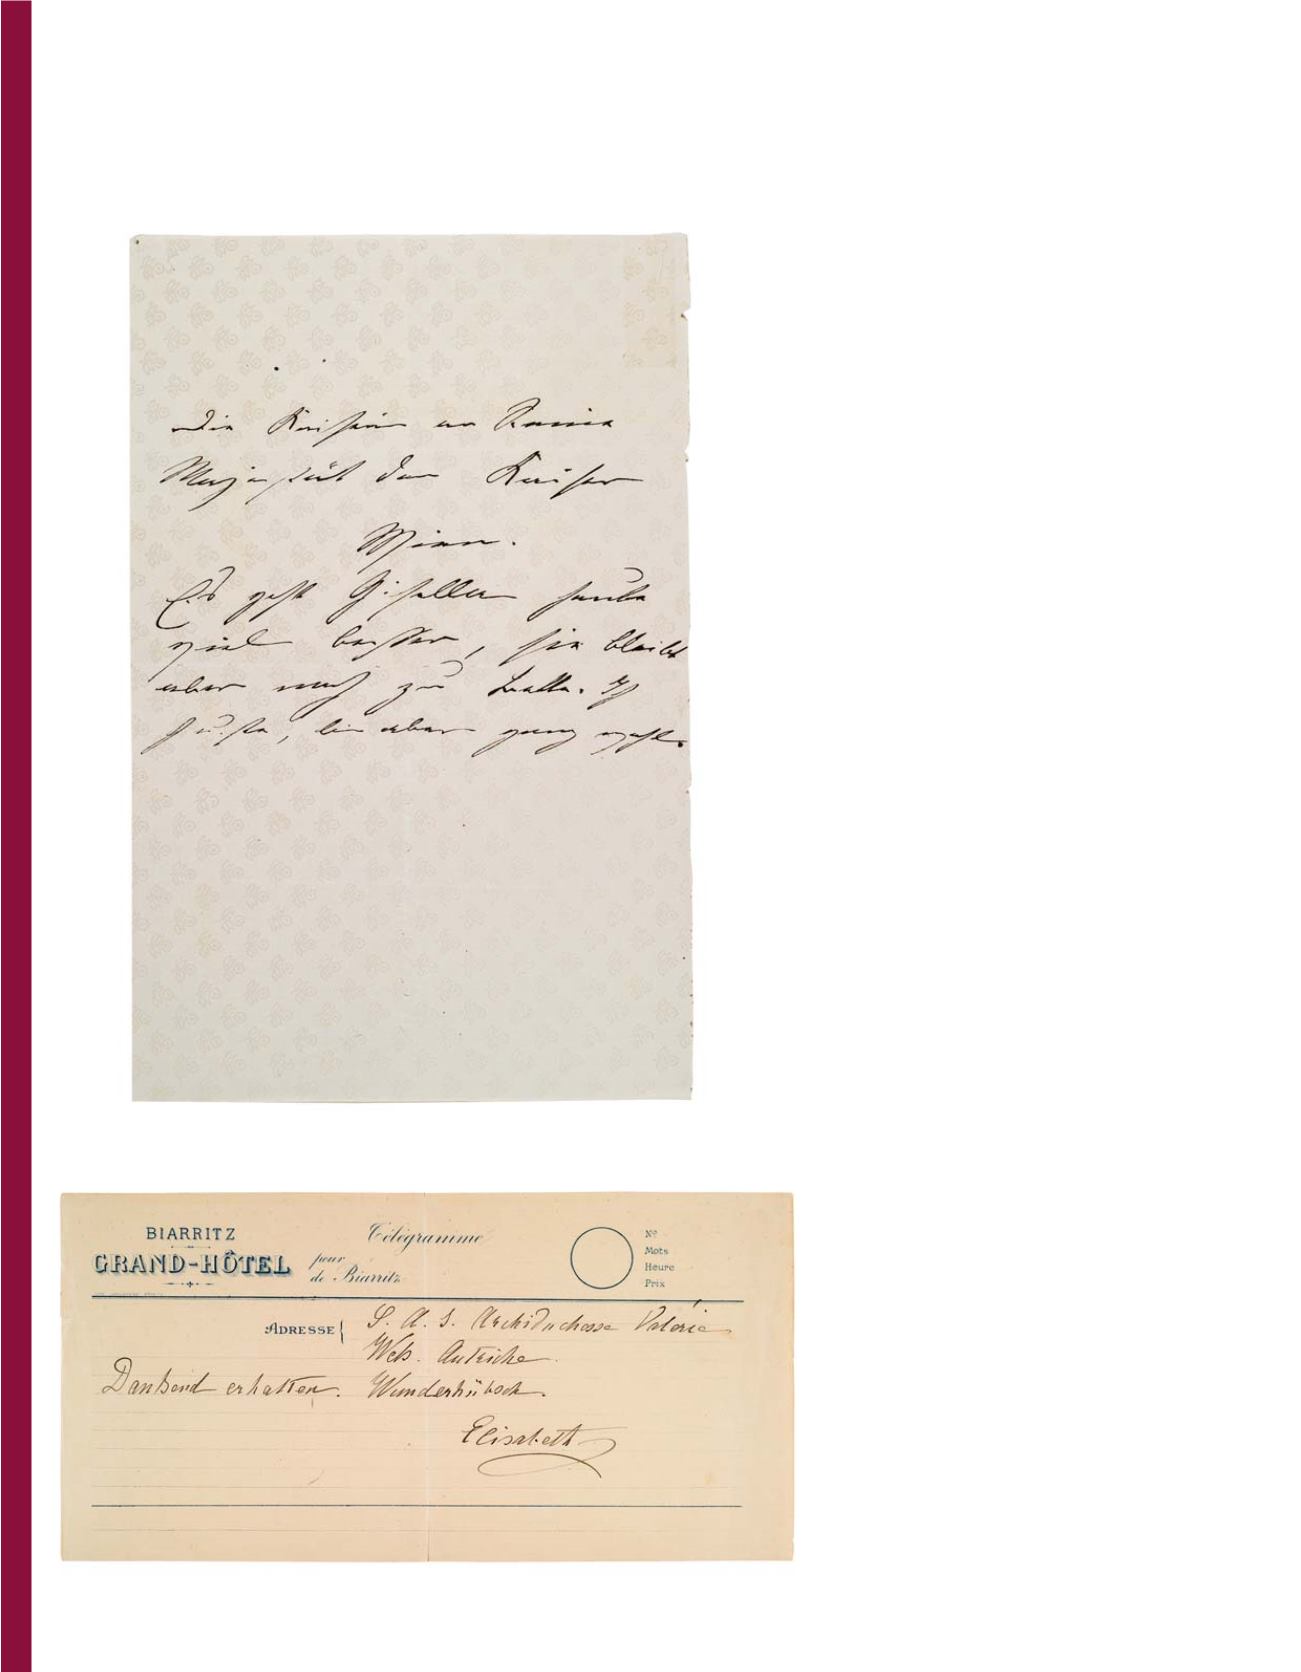 Die Kaiserin an Seine
Majestät den Kaiser
Wien.
Es geht Gisella heute
viel besser, sie bleibt
aber noch zu Bette. Ich
huste, bin aber ganz wohl.
BIARRITZ
GRAND-HÔTEL
Télégramme
pour
de Biarritz
No
Mots
Heure
Prix
ADRESSE { S. A. I. Archiduchesse Valérie
Wels. Autriche.
Dankend erhalten. Wunderhübsch.
Elisabeth